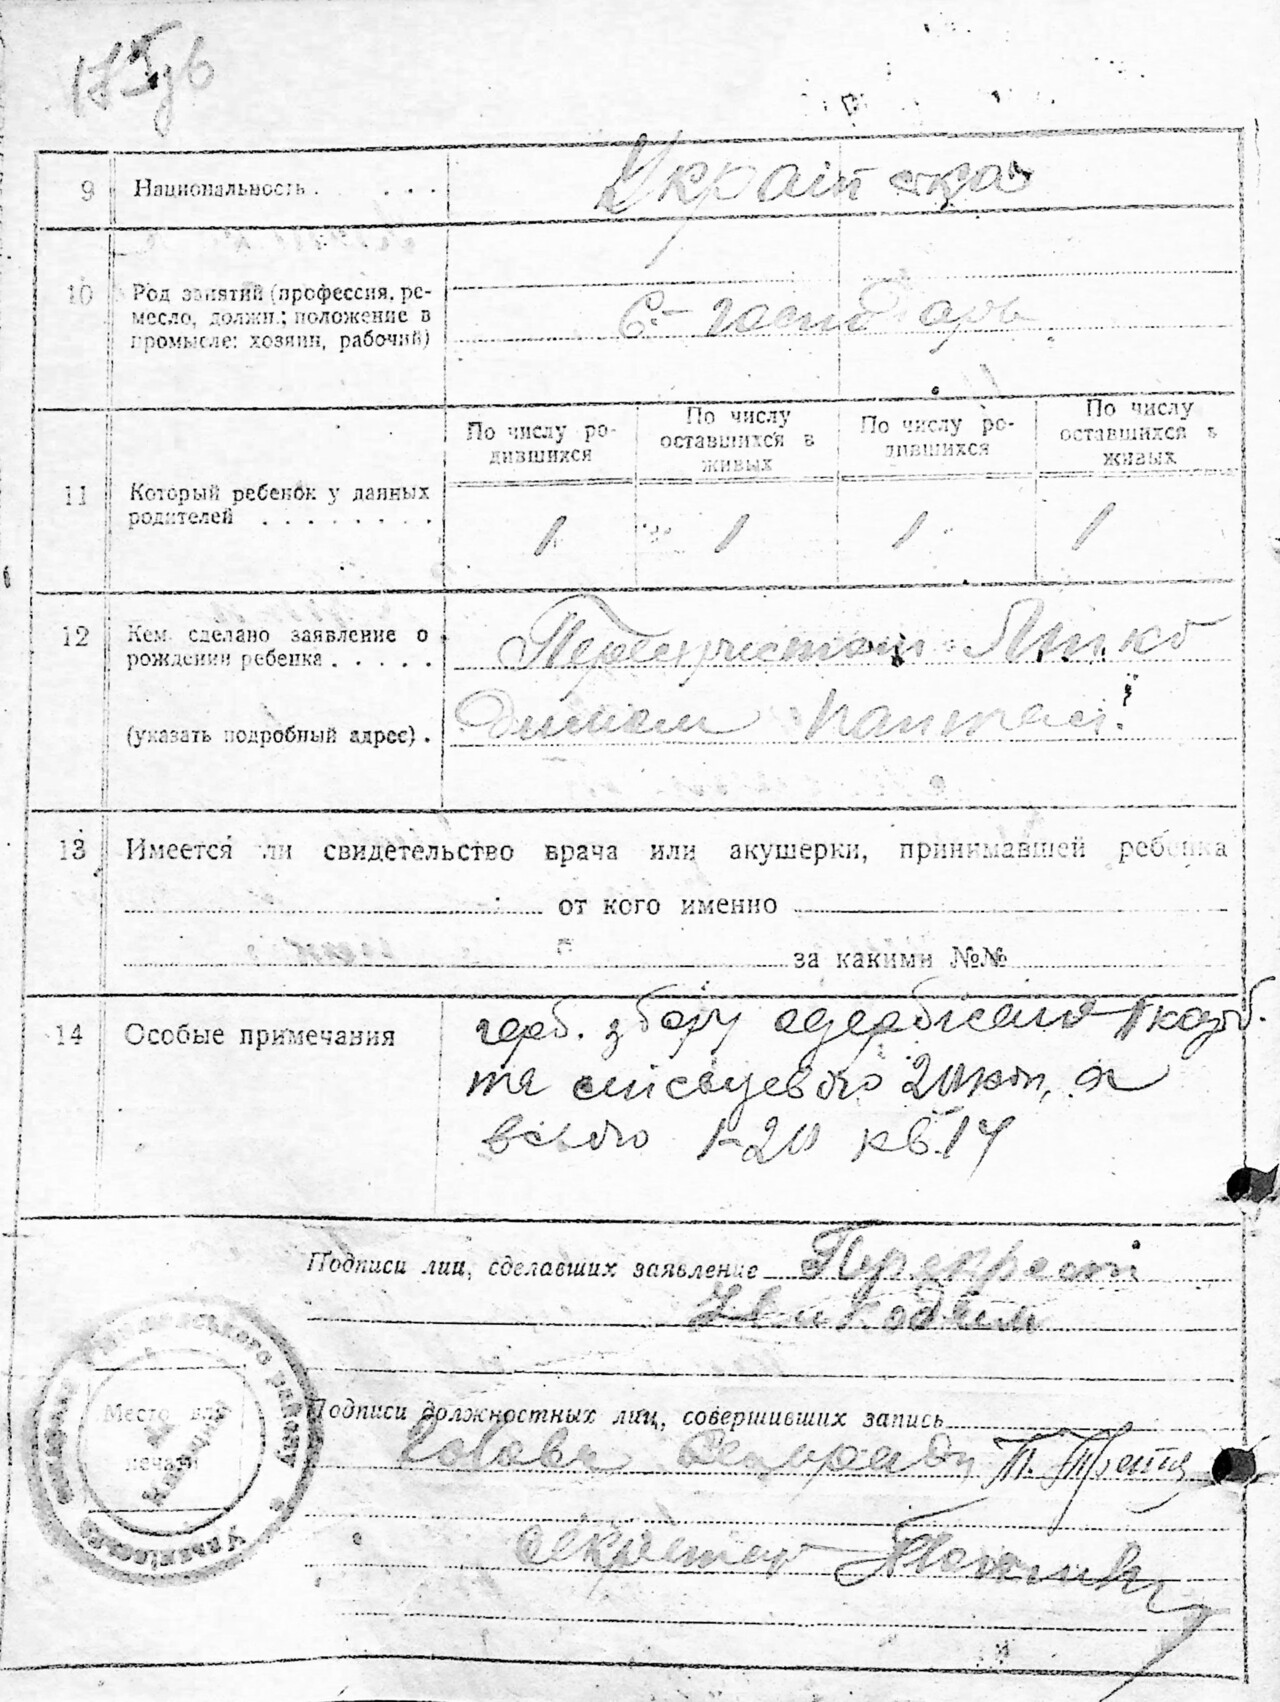 9 Национальность . . . . Українка
10 Род занятий (профессия, ре-
месло, должн.; положение в
промысле: хозяин, рабочий)
С.-господарь
По числу ро-
дившихся
По числу
оставшихся в
живых
По числу ро-
дившихся
По числу
оставшихся в
живых
11 Который ребенок у данных
родителей . . . . . . . .
1 1 1 1
12 Кем сделано заявление о
рождении ребенка . . . . .
(указать подробный адрес) .
13 Имеется ли свидетельство врача или акушерки, принимавшей ребенка
от кого именно
за какими №№
14 Особые примечания
герб. збору одержано 1 карб.
та місцевого 20 коп, а
всього 1-20 кв.14
Подписи лиц, сделавших заявление Перехрест
Никодим
Подписи должностных лиц, совершивших запись
Голова Сельради
секретар
Место для
печати
району